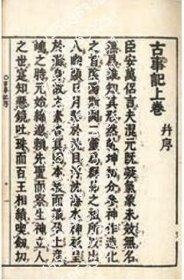 古事記上卷 并序
臣安萬侶言夫混元既凝氣象未效無名
無爲誰知其形然乾坤初分參神作造化
之首陰陽斯開二靈爲群品之祖所以出
入幽顯日月彰於洗目浮沈海水神祇呈
於滌身故太素杳冥因本教而識孕土産
嶋之時元始綿邈頼先聖而察生神立人
之世寔知懸鏡吐珠而百王相續喫釼切